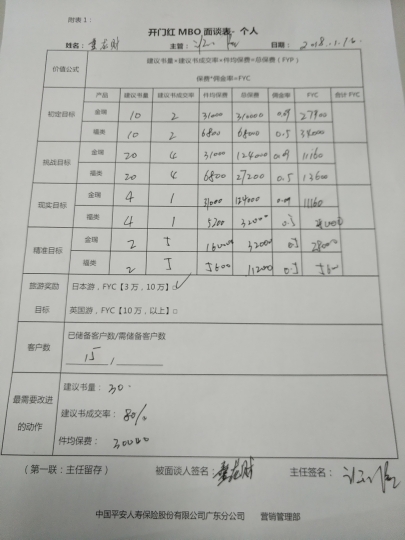 附表1：
开门红 MBO 面谈表 个人
姓名： 主管： 日期：2018.1.16.
价值公式 建议书量*建议书成交率*件均保费=总保费（FYP）
保费*佣金率=FYC
产品 建议书量 建议书成交率 件均保费 总保费 佣金率 FYC 合计 FYC
初定目标 金瑞 10 2 31000 310000 0.09 27900
福类 10 2 6800 68000 0.5 34000
挑战目标 金瑞 20 4 31000 124000 0.09 11160
福类 20 4 6800 27200 0.5 13600
现实目标 金瑞 4 1 31000 124000 0.09 11160
福类 4 1 32000
精准目标 金瑞 2 32000
福类 2 5600 11200
旅游奖励 日本游，FYC【3 万，10 万】√
目标 英国游，FYC【10 万，以上】□
客户数 已储备客户数/需储备客户数
15 /
最需要改进的动作 建议书量：30.
建议书成交率：80%
件均保费：30000
（第一联：主任留存） 被面谈人签名： 主任签名：
中国平安人寿保险股份有限公司广东分公司 营销管理部